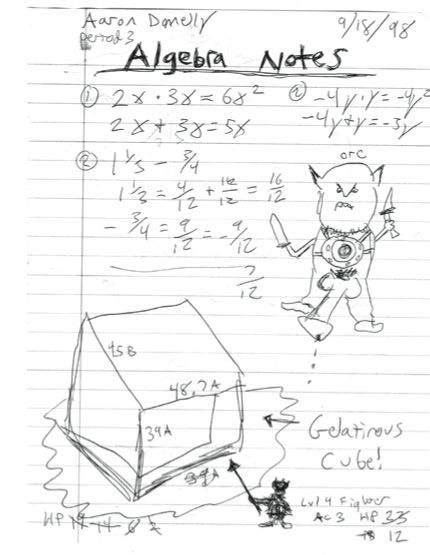 Aaron Donelly 9/18/98
period 3
Algebra Notes
① 2x · 3x = 6x²
2x + 3x = 5x
② -4y · y = -4y²
-4y + y = -3y
② 1 1/3 - 3/4
1 1/3 = 4/12 + 12/12 = 16/12
- 3/4 = 9/12 = -9/12
7/12
orc
45B
48.7A
39A
39A
Gelatinous
Cube!
Lvl 4 Fighter
AC 3 HP 335
12
HP